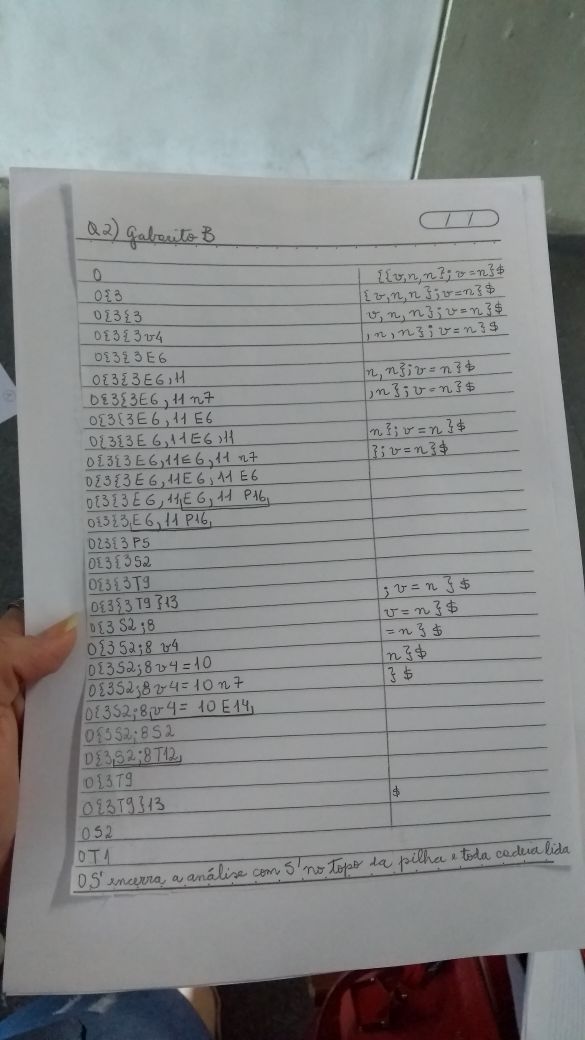 Q2) Gabarito B
/ /
0 {{v,n,n};v=n}$
0{3 {v,n,n};v=n}$
0{3{3 v,n,n};v=n}$
0{3{3v4 ,n,n};v=n}$
0{3{3E6
0{3{3E6,11 n,n};v=n}$
0{3{3E6,11n7 ,n};v=n}$
0{3{3E6,11E6
0{3{3E6,11E6,11 n};v=n}$
0{3{3E6,11E6,11n7 };v=n}$
0{3{3E6,11E6,11E6
0{3{3E6,11E6,11P16
0{3{3E6,11P16
0{3{3P5
0{3{3S2
0{3{3T9
0{3{3T9}13 ;v=n}$
0{3S2;8 v=n}$
0{3S2;8v4 =n}$
0{3S2;8v4=10 n}$
0{3S2;8v4=10n7 }$
0{3S2;8v4=10E14
0{3S2;8S2
0{3S2;8T12
0{3T9
0{3T9}13 $
0S2
0T1
0S' encerra a análise com S' no topo da pilha e toda cadeia lida